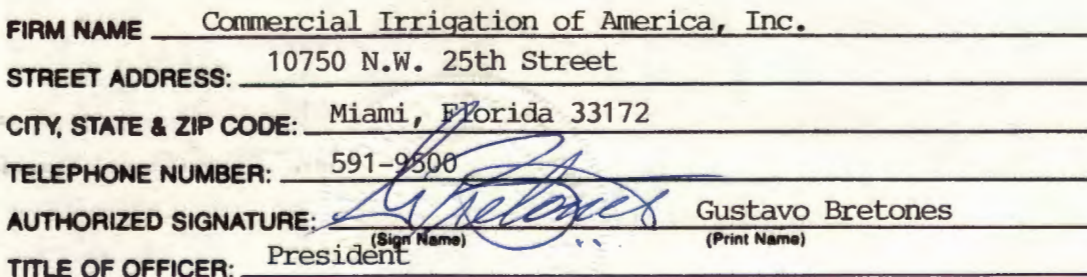 FIRM NAME Commercial Irrigation of America, Inc.
STREET ADDRESS: 10750 N.W. 25th Street
CITY, STATE & ZIP CODE: Miami, Florida 33172
TELEPHONE NUMBER: 591-9500
AUTHORIZED SIGNATURE: G Bretones Gustavo Bretones
(Sign Name) (Print Name)
TITLE OF OFFICER: President